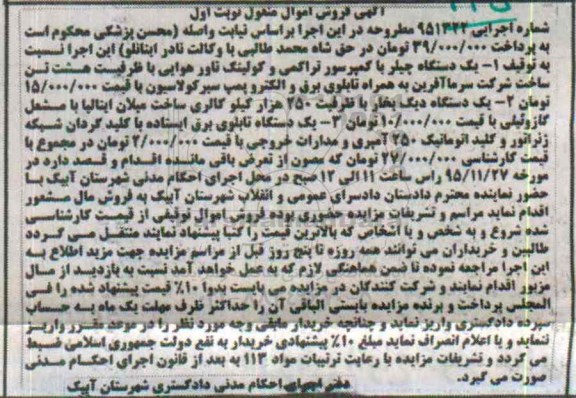 ۱۱۵
آگهی فروش اموال منقول نوبت اول
شماره اجرایی ۹۵۱۳۲۲ مطروحه در این اجرا براساس نیابت واصله (محسن پزشکی محکوم است
به پرداخت ۳۹/۰۰۰/۰۰۰ تومان در حق شاه محمد طالبی با وکالت نادر اینانلو) این اجرا نسبت
به توقیف ۱- یک دستگاه چیلر با کمپرسور تراکمی و کولینگ تاور هوایی با ظرفیت هشت تن
ساخت شرکت سرماآفرین به همراه تابلوی برق و الکترو پمپ سیرکولاسیون با قیمت ۱۵/۰۰۰/۰۰۰
تومان ۲- یک دستگاه دیگ بخار با ظرفیت ۲۵۰ هزار کیلو کالری ساخت میلان ایتالیا با مشعل
گازوئیلی با قیمت ۱۰/۰۰۰/۰۰۰ تومان ۳- یک دستگاه تابلوی برق ایستاده با کلید گردان شبکه
ژنراتور و کلید اتوماتیک ۲۵۰ آمپری و مدارات خروجی با قیمت ۲/۰۰۰/۰۰۰ تومان در مجموع با
قیمت کارشناسی ۲۷/۰۰۰/۰۰۰ تومان که مصون از تعرض باقی مانده اقدام و قصد دارد در
مورخه ۹۵/۱۱/۲۷ راس ساعت ۱۱ الی ۱۲ صبح در محل اجرای احکام مدنی شهرستان آبیک با
حضور نماینده محترم دادستان دادسرای عمومی و انقلاب شهرستان آبیک به فروش مال مشعور
اقدام نماید مراسم و تشریفات مزایده حضوری بوده فروش اموال توقیفی از قیمت کارشناسی
شده شروع و به شخص و یا اشخاص که بالاترین قیمت را کتبا پیشنهاد نمایند منتقل می گردد
طالبین و خریداران می توانند همه روزه تا پنج روز قبل از مراسم مزایده جهت مزید اطلاع به
این اجرا مراجعه نموده تا ضمن هماهنگی لازم که به عمل خواهد آمد نسبت به بازدید از مال
مزبور اقدام نمایند و شرکت کنندگان در مزایده می بایست بدوا ۱۰٪ قیمت پیشنهاد شده را فی
المجلس پرداخت و برنده مزایده بایستی الباقی آن را حداکثر ظرف مهلت یک ماه به حساب
سپرده دادگستری واریز نماید و چنانچه خریدار مابقی وجه مورد نظر را در موعد مقرر واریز
ننماید و یا اعلام انصراف نماید مبلغ ۱۰٪ پیشنهادی خریدار به نفع دولت جمهوری اسلامی ضبط
می گردد و تشریفات مزایده با رعایت ترتیبات مواد ۱۱۳ به بعد از قانون اجرای احکام مدنی
صورت می گیرد.
دفتر اجرای احکام مدنی دادگستری شهرستان آبیک